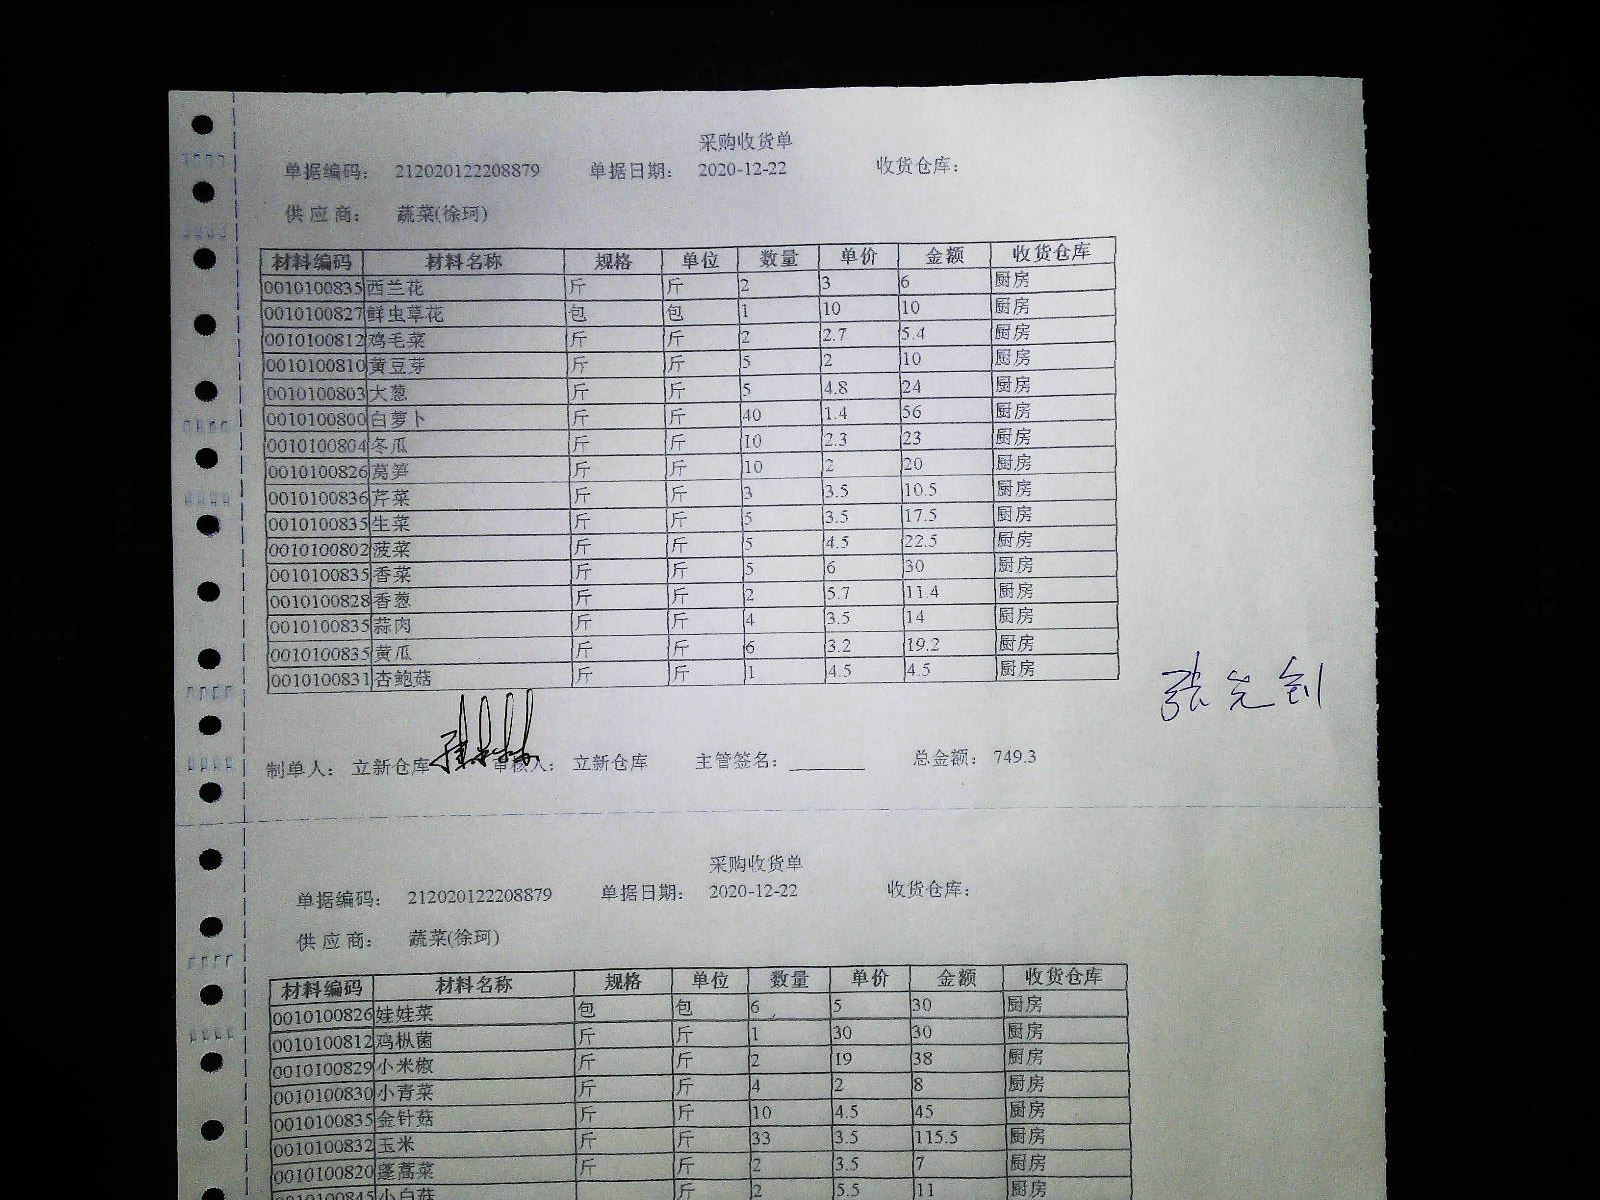 采购收货单
单据编码： 212020122208879 单据日期： 2020-12-22 收货仓库：
供 应 商： 蔬菜(徐珂)
材料编码 材料名称 规格 单位 数量 单价 金额 收货仓库
0010100835 西兰花 斤 斤 2 3 6 厨房
0010100827 鲜虫草花 包 包 1 10 10 厨房
0010100812 鸡毛菜 斤 斤 2 2.7 5.4 厨房
0010100810 黄豆芽 斤 斤 5 2 10 厨房
0010100803 大葱 斤 斤 5 4.8 24 厨房
0010100800 白萝卜 斤 斤 40 1.4 56 厨房
0010100804 冬瓜 斤 斤 10 2.3 23 厨房
0010100826 莴笋 斤 斤 10 2 20 厨房
0010100836 芹菜 斤 斤 3 3.5 10.5 厨房
0010100835 生菜 斤 斤 5 3.5 17.5 厨房
0010100802 菠菜 斤 斤 5 4.5 22.5 厨房
0010100835 香菜 斤 斤 5 6 30 厨房
0010100828 香葱 斤 斤 2 5.7 11.4 厨房
0010100835 蒜肉 斤 斤 4 3.5 14 厨房
0010100835 黄瓜 斤 斤 6 3.2 19.2 厨房
0010100831 杏鲍菇 斤 斤 1 4.5 4.5 厨房
制单人： 立新仓库 审核人： 立新仓库 主管签名：________ 总金额： 749.3
采购收货单
单据编码： 212020122208879 单据日期： 2020-12-22 收货仓库：
供 应 商： 蔬菜(徐珂)
材料编码 材料名称 规格 单位 数量 单价 金额 收货仓库
0010100826 娃娃菜 包 包 6 5 30 厨房
0010100812 鸡枞菌 斤 斤 1 30 30 厨房
0010100829 小米椒 斤 斤 2 19 38 厨房
0010100830 小青菜 斤 斤 4 2 8 厨房
0010100835 金针菇 斤 斤 10 4.5 45 厨房
0010100832 玉米 斤 斤 33 3.5 115.5 厨房
0010100820 蓬蒿菜 斤 斤 2 3.5 7 厨房
0010100845 小白菇 斤 2 5.5 11 厨房